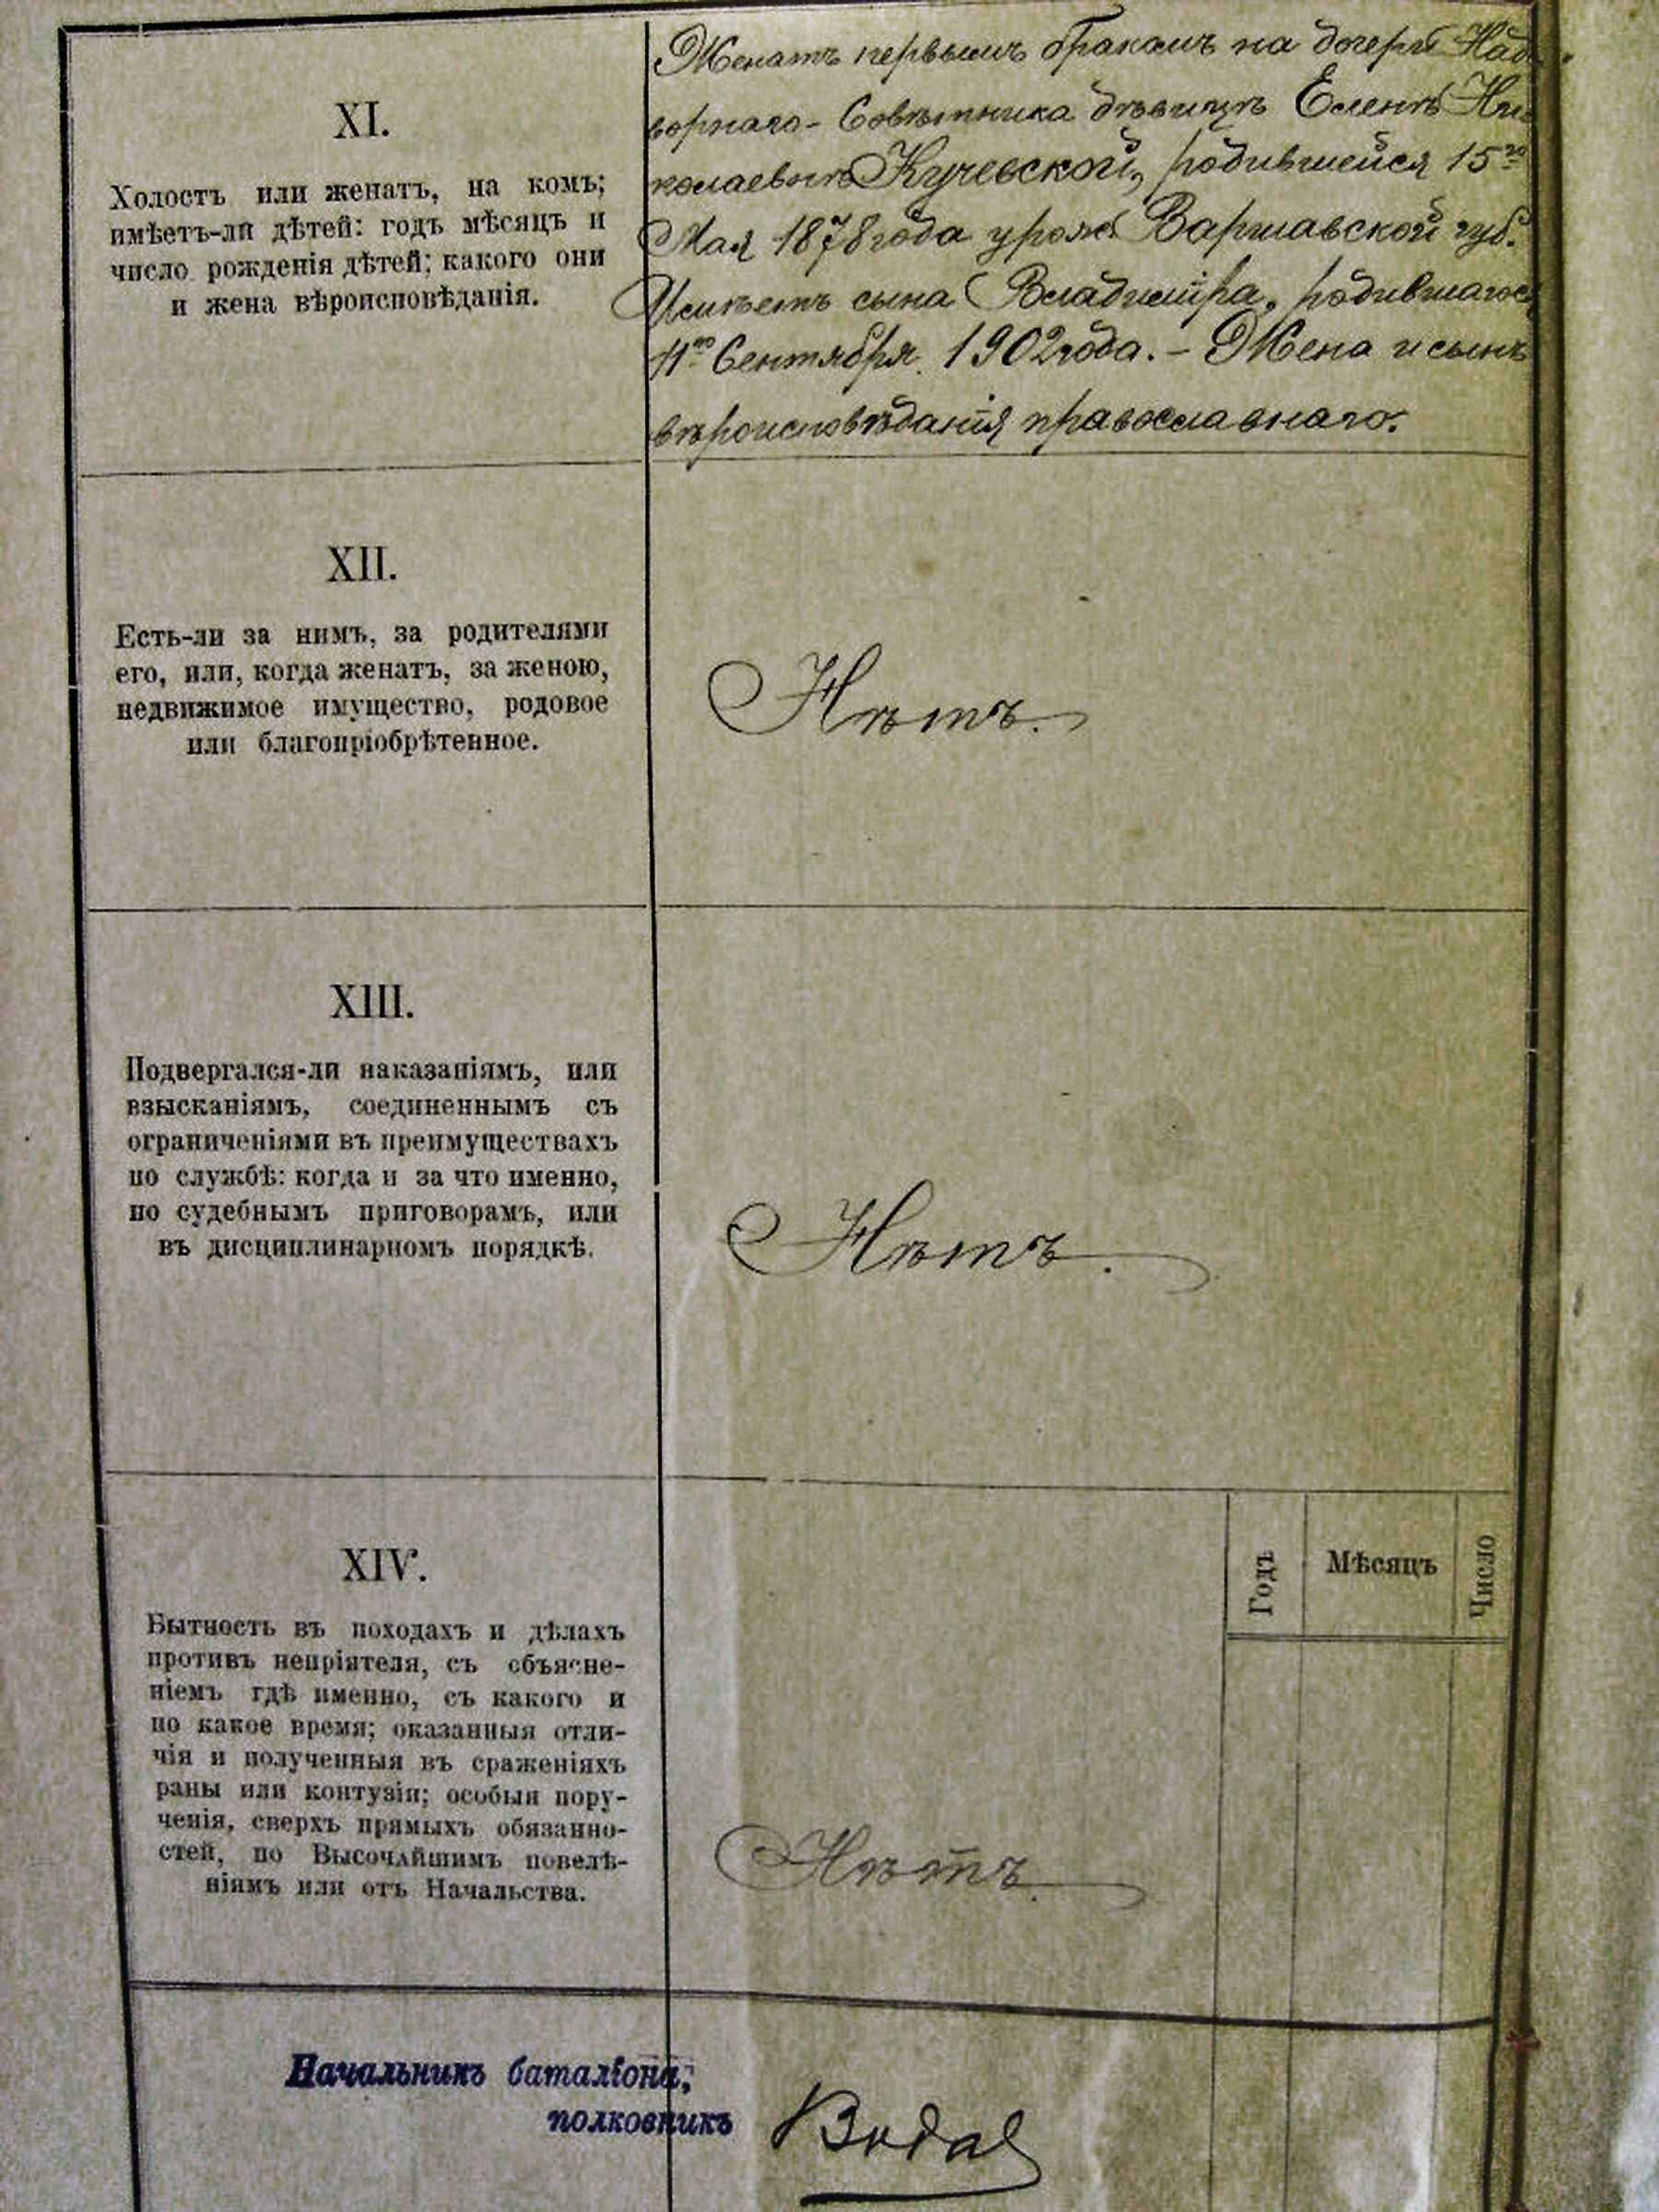 XI.
Холостъ или женатъ, на комъ;
имѣетъ-ли дѣтей: годъ мѣсяцъ и
число рожденія дѣтей; какого они
и жена вѣроисповѣданія.
Женатъ первымъ бракомъ на дочери Над
ворнаго-Совѣтника дѣвицѣ Еленѣ Ни
колаевнѣ Кучевской, родившейся 15го
Мая 1878 года урож. Варшавской губ.
Имѣетъ сына Владиміра, родившагося
11го Сентября 1902 года. - Жена и сынъ
вѣроисповѣданія православнаго.
XII.
Есть-ли за нимъ, за родителями
его, или, когда женатъ, за женою,
недвижимое имущество, родовое
или благопріобрѣтенное.
Нѣтъ.
XIII.
Подвергался-ли наказаніямъ, или
взысканіямъ, соединеннымъ съ
ограниченіями въ преимуществахъ
по службѣ: когда и за что именно,
по судебнымъ приговорамъ, или
въ дисциплинарномъ порядкѣ.
Нѣтъ.
XIV.
Бытность въ походахъ и дѣлахъ
противъ непріятеля, съ объясне-
ніемъ гдѣ именно, съ какого и
по какое время; оказанныя отли-
чія и полученныя въ сраженіяхъ
раны или контузіи; особыя пору-
ченія, сверхъ прямыхъ обязанно-
стей, по Высочайшимъ повелѣ-
ніямъ или отъ Начальства.
Годъ
Мѣсяцъ
Число
Нѣтъ.
Начальникъ баталіона,
полковникъ